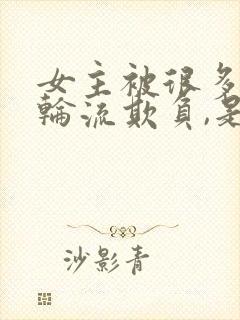 女主被很多
輪流欺負,是
沙影青